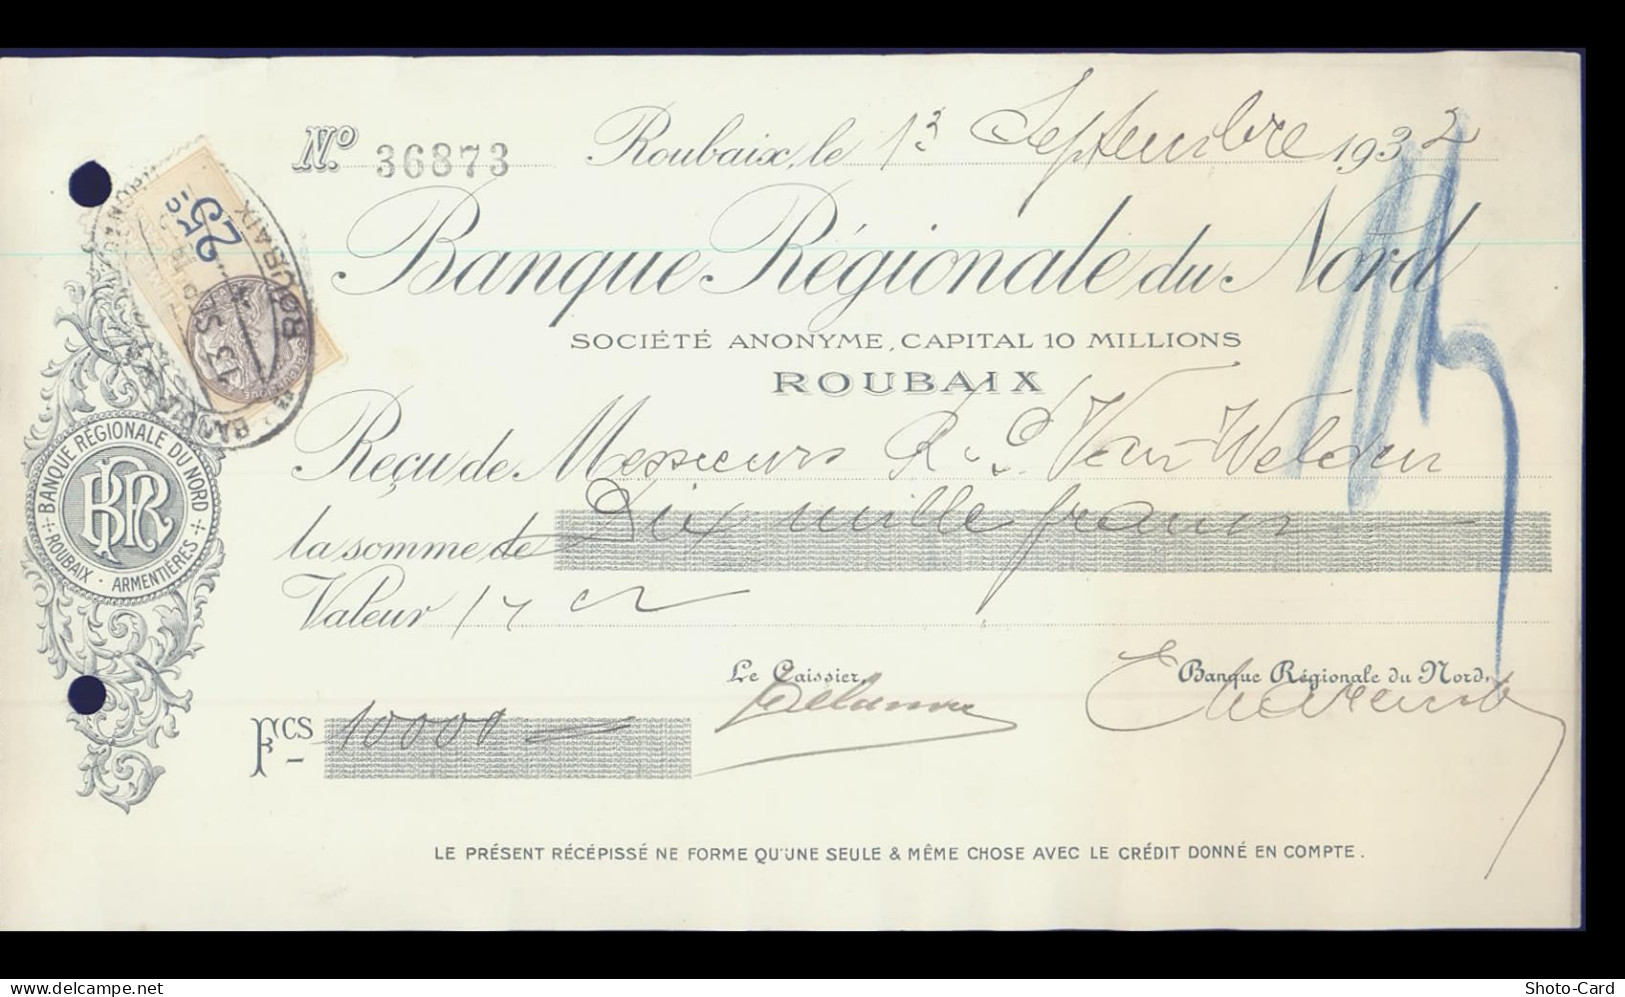 Nº 36873 Roubaix, le 13 Septembre 1932
25 c
BANQUE RÉGIONALE DU NORD
ROUBAIX
13 S
Banque Régionale du Nord
SOCIÉTÉ ANONYME, CAPITAL 10 MILLIONS
ROUBAIX
Reçu de Messieurs R. & Van Welden
la somme de Dix mille francs
Valeur 17 ct
BANQUE RÉGIONALE DU NORD
BRN
ROUBAIX - ARMENTIÈRES
Le Caissier, Banque Régionale du Nord,
Fcs 10000
LE PRÉSENT RÉCÉPISSÉ NE FORME QU'UNE SEULE & MÊME CHOSE AVEC LE CRÉDIT DONNÉ EN COMPTE.
www.delcampe.net Shoto-Card